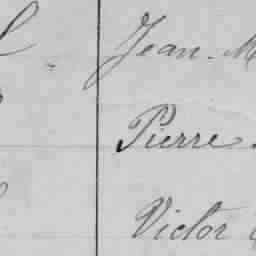 Jean-M
Pierre
Victor